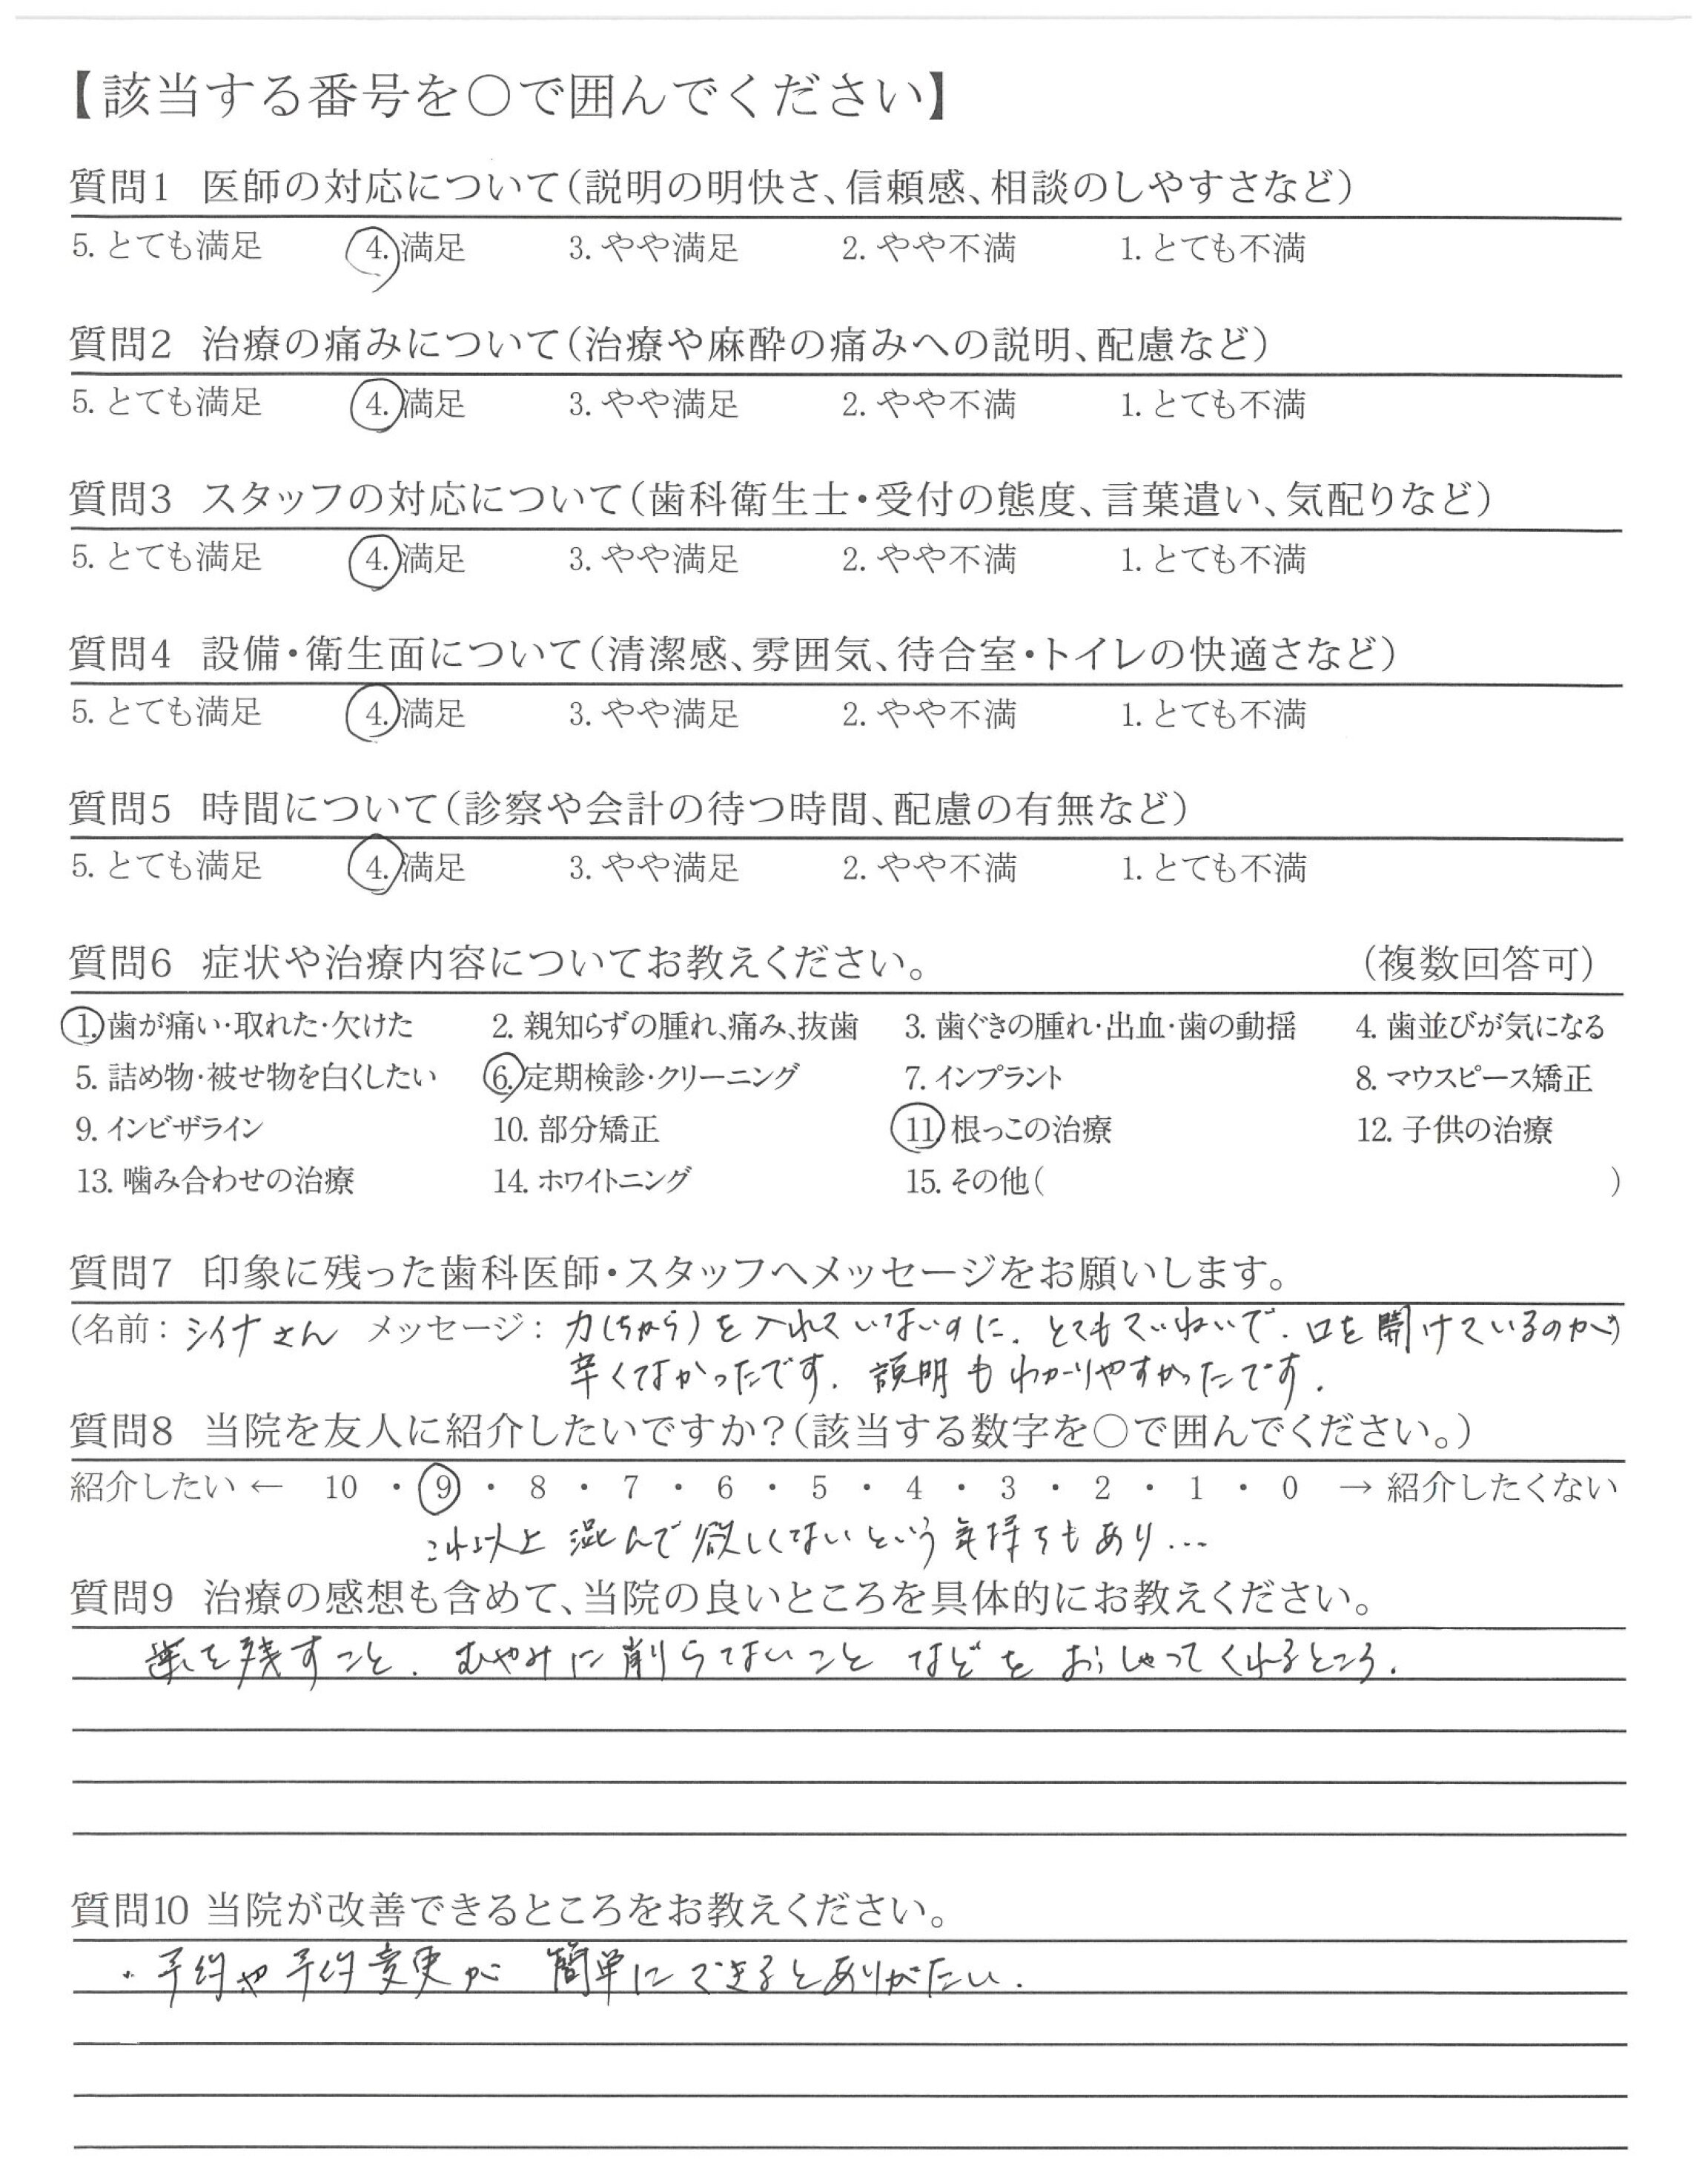 【該当する番号を○で囲んでください】
質問1 医師の対応について（説明の明快さ、信頼感、相談のしやすさなど）
5. とても満足 4. 満足 3. やや満足 2. やや不満 1. とても不満
質問2 治療の痛みについて（治療や麻酔の痛みへの説明、配慮など）
5. とても満足 4. 満足 3. やや満足 2. やや不満 1. とても不満
質問3 スタッフの対応について（歯科衛生士・受付の態度、言葉遣い、気配りなど）
5. とても満足 4. 満足 3. やや満足 2. やや不満 1. とても不満
質問4 設備・衛生面について（清潔感、雰囲気、待合室・トイレの快適さなど）
5. とても満足 4. 満足 3. やや満足 2. やや不満 1. とても不満
質問5 時間について（診察や会計の待つ時間、配慮の有無など）
5. とても満足 4. 満足 3. やや満足 2. やや不満 1. とても不満
質問6 症状や治療内容についてお教えください。 （複数回答可）
1. 歯が痛い・取れた・欠けた 2. 親知らずの腫れ、痛み、抜歯 3. 歯ぐきの腫れ・出血・歯の動揺 4. 歯並びが気になる
5. 詰め物・被せ物を白くしたい 6. 定期検診・クリーニング 7. インプラント 8. マウスピース矯正
9. インビザライン 10. 部分矯正 11. 根っこの治療 12. 子供の治療
13. 噛み合わせの治療 14. ホワイトニング 15. その他（ ）
質問7 印象に残った歯科医師・スタッフへメッセージをお願いします。
（名前：シイナさん メッセージ：力（ちから）を入れていないのに、とてもていねいで、口を開けているのが）
辛くなかったです。説明もわかりやすかったです。
質問8 当院を友人に紹介したいですか？（該当する数字を○で囲んでください。）
紹介したい ← 10 ・ 9 ・ 8 ・ 7 ・ 6 ・ 5 ・ 4 ・ 3 ・ 2 ・ 1 ・ 0 → 紹介したくない
これ以上 混んで欲しくないという気持ちもあり…
質問9 治療の感想も含めて、当院の良いところを具体的にお教えください。
歯を残すこと、むやみに削らないこと などを おっしゃってくれるところ。
質問10 当院が改善できるところをお教えください。
・予約や予約変更が 簡単にできるとありがたい。